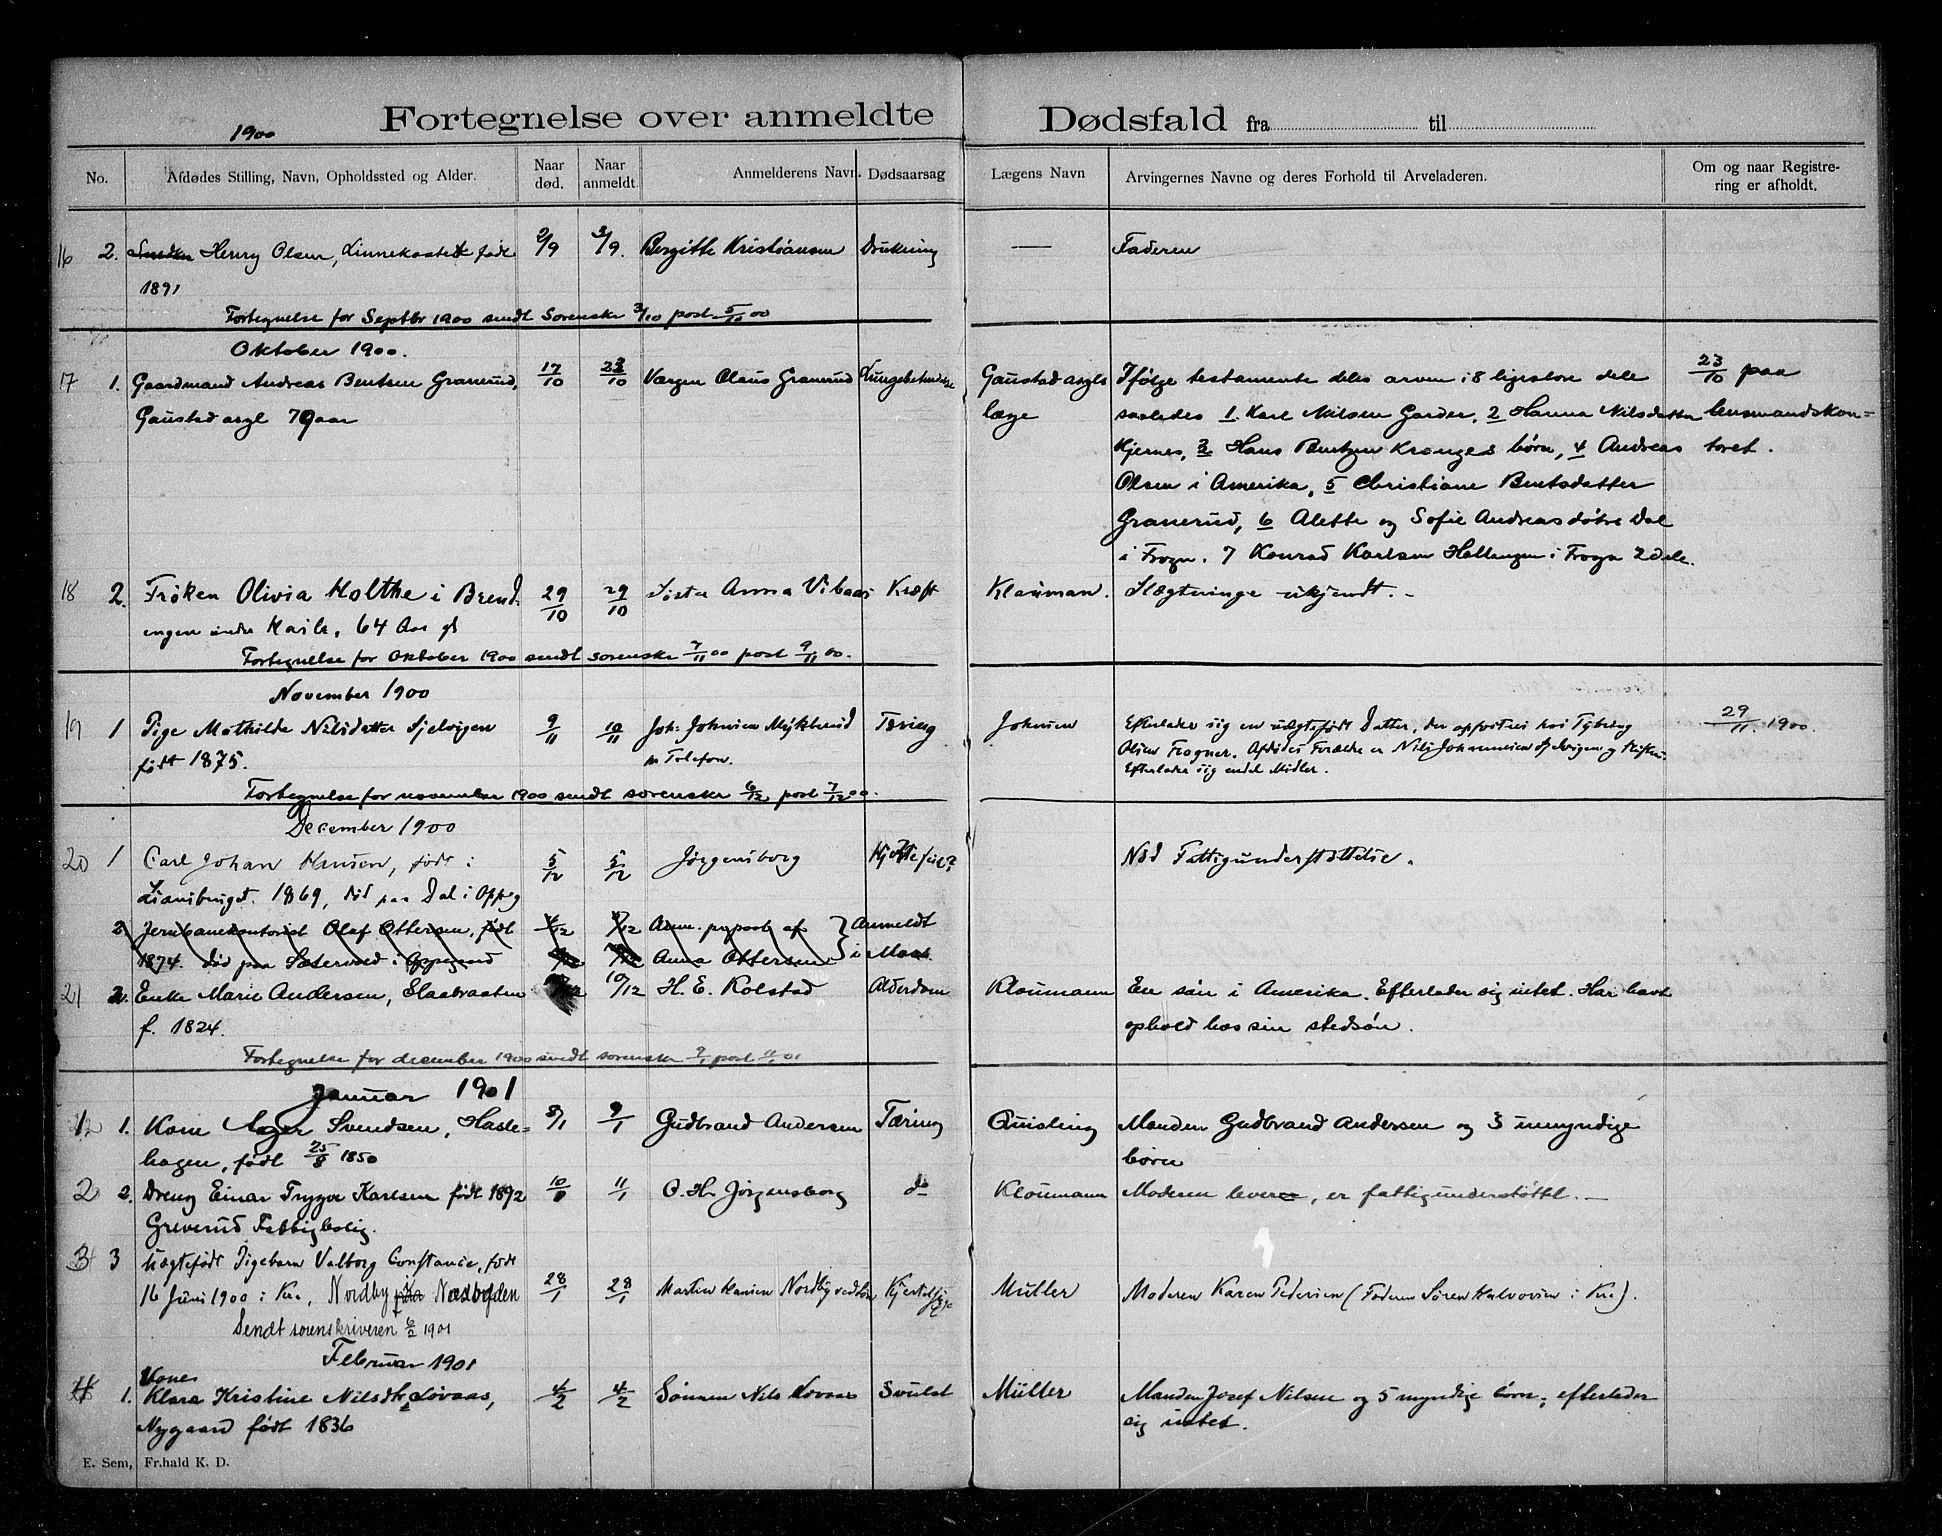 Fortegnelse over anmeldte Dødsfald fra til
1900
No. Afdødes Stilling, Navn, Opholdssted og Alder. Naar død. Naar anmeldt. Anmelderens Navn. Dødsaarsag Lægens Navn Arvingernes Navne og deres Forhold til Arveladeren. Om og naar Registrering er afholdt.
16 2. Henry Olsen, Linnekastet født 2/9 3/9. Bergitte Kristiansen Drukning — Faderen
1891
Fortegnelse for Septbr 1900 sendt Sorenskr 3/10 post 5/10 00
Oktober 1900.
17 1. Gaardmand Andreas Bentsen Granerud, 17/10 23/10 Værgen Olaus Granerud Lungebetændelse Gaustad asyls Ifølge testamente deles arven i 8 ligestore dele 23/10 paa
Gaustad asyl 79 aar læge saaledes 1. Karl Nilsen Garder, 2 Hanna Nilsdatter lensmandskon=
Kjernes, 3 Hans Bentzen Kranges børn, 4 Andreas toret.
Olsen i Amerika, 5 Christiane Bentsdatter
Granerud, 6 Alette og Sofie Andreasdøtre Dal
i Frogn. 7 Konrad Karlsen Hallangen i Frogn 2 dele.
18 2. Frøken Olivia Holthe i Brend 29/10 29/10 Søster Anna Vibaas Kræft Klouman. Slægtninge ukjendt. -
engen under Haslr. 64 Aar gl
Fortegnelse for Oktober 1900 sendt sorenskr 7/11 00 post 9/11 00.
November 1900
19 1 Pige Mathilde Nilsdatter Sjelvigen 9/11 10/11 Joh. Johnsen Myklerud Tæring Johnsen Efterlader sig en uægtefødt Datter, der opfostres hos Tyberg 29/11 1900.
født 1875. pr Telefon. Olsen Frogner. Afdødes Forældre er Nils Johannesen Sjelvigen og
Efterlader sig endel Midler.
Fortegnelse for november 1900 sendt sorenskr 6/12 post 7/12 00.
December 1900
20 1 Carl Johan Hansen, født i 5/12 5/12 Jørgensborg Hjertefeil? Nød Fattigunderstøttelse.
1869, død paa Dal i Oppeg
2 Jernbanekontorist Olaf Ottersen, født 4/12 Anm. pr post af } Anmeldt
1874. død paa Sætervold i Oppegaard Anna Ottersen i Moss
21 2. Enke Marie Andersen, Slaabraaten 10/12 H. E. Kolstad Alderdom Kloumann En søn i Amerika. Efterlader sig intet. Har havt
f. 1824. ophold hos sin stedsøn.
Fortegnelse for december 1900 sendt sorenskr 9/1 post 11/1 01
Januar 1901
1. Kone Svendsen, Hasle= 8/1 9/1 Gudbrand Andersen Tæring Quisling Manden Gudbrand Andersen og 3 umyndige
hagen, født 25/8 1850 børn
2 2. Dreng Einar Trygve Karlsen født 1892 11/1 O. H. Jørgensborg do Kloumann Moderen lever, er fattigunderstøttet. —
Greverud Fattigbolig.
3 3 Uægtefødt Pigebarn Valborg Constance, født
16 Juni 1900 i Kra, Nordby Nordbyden 28/1 28/1 Martin Hansen Nordbyveddn Müller Moderen Karen Pedersen (Faderen Søren Halvorsen i Kra).
Sendt sorenskriveren 6/2 1901
Februar 1901
Kone
1. Klara Kristine Nilsdtr Løvaas, 4/2 4/2 Sønnen Nils Løvaas Svulst Müller Manden Josef Nilsen og 5 myndige børn; efterlader
Nygaard født 1836 sig intet.
E. Sem, Fr.hald K. D.